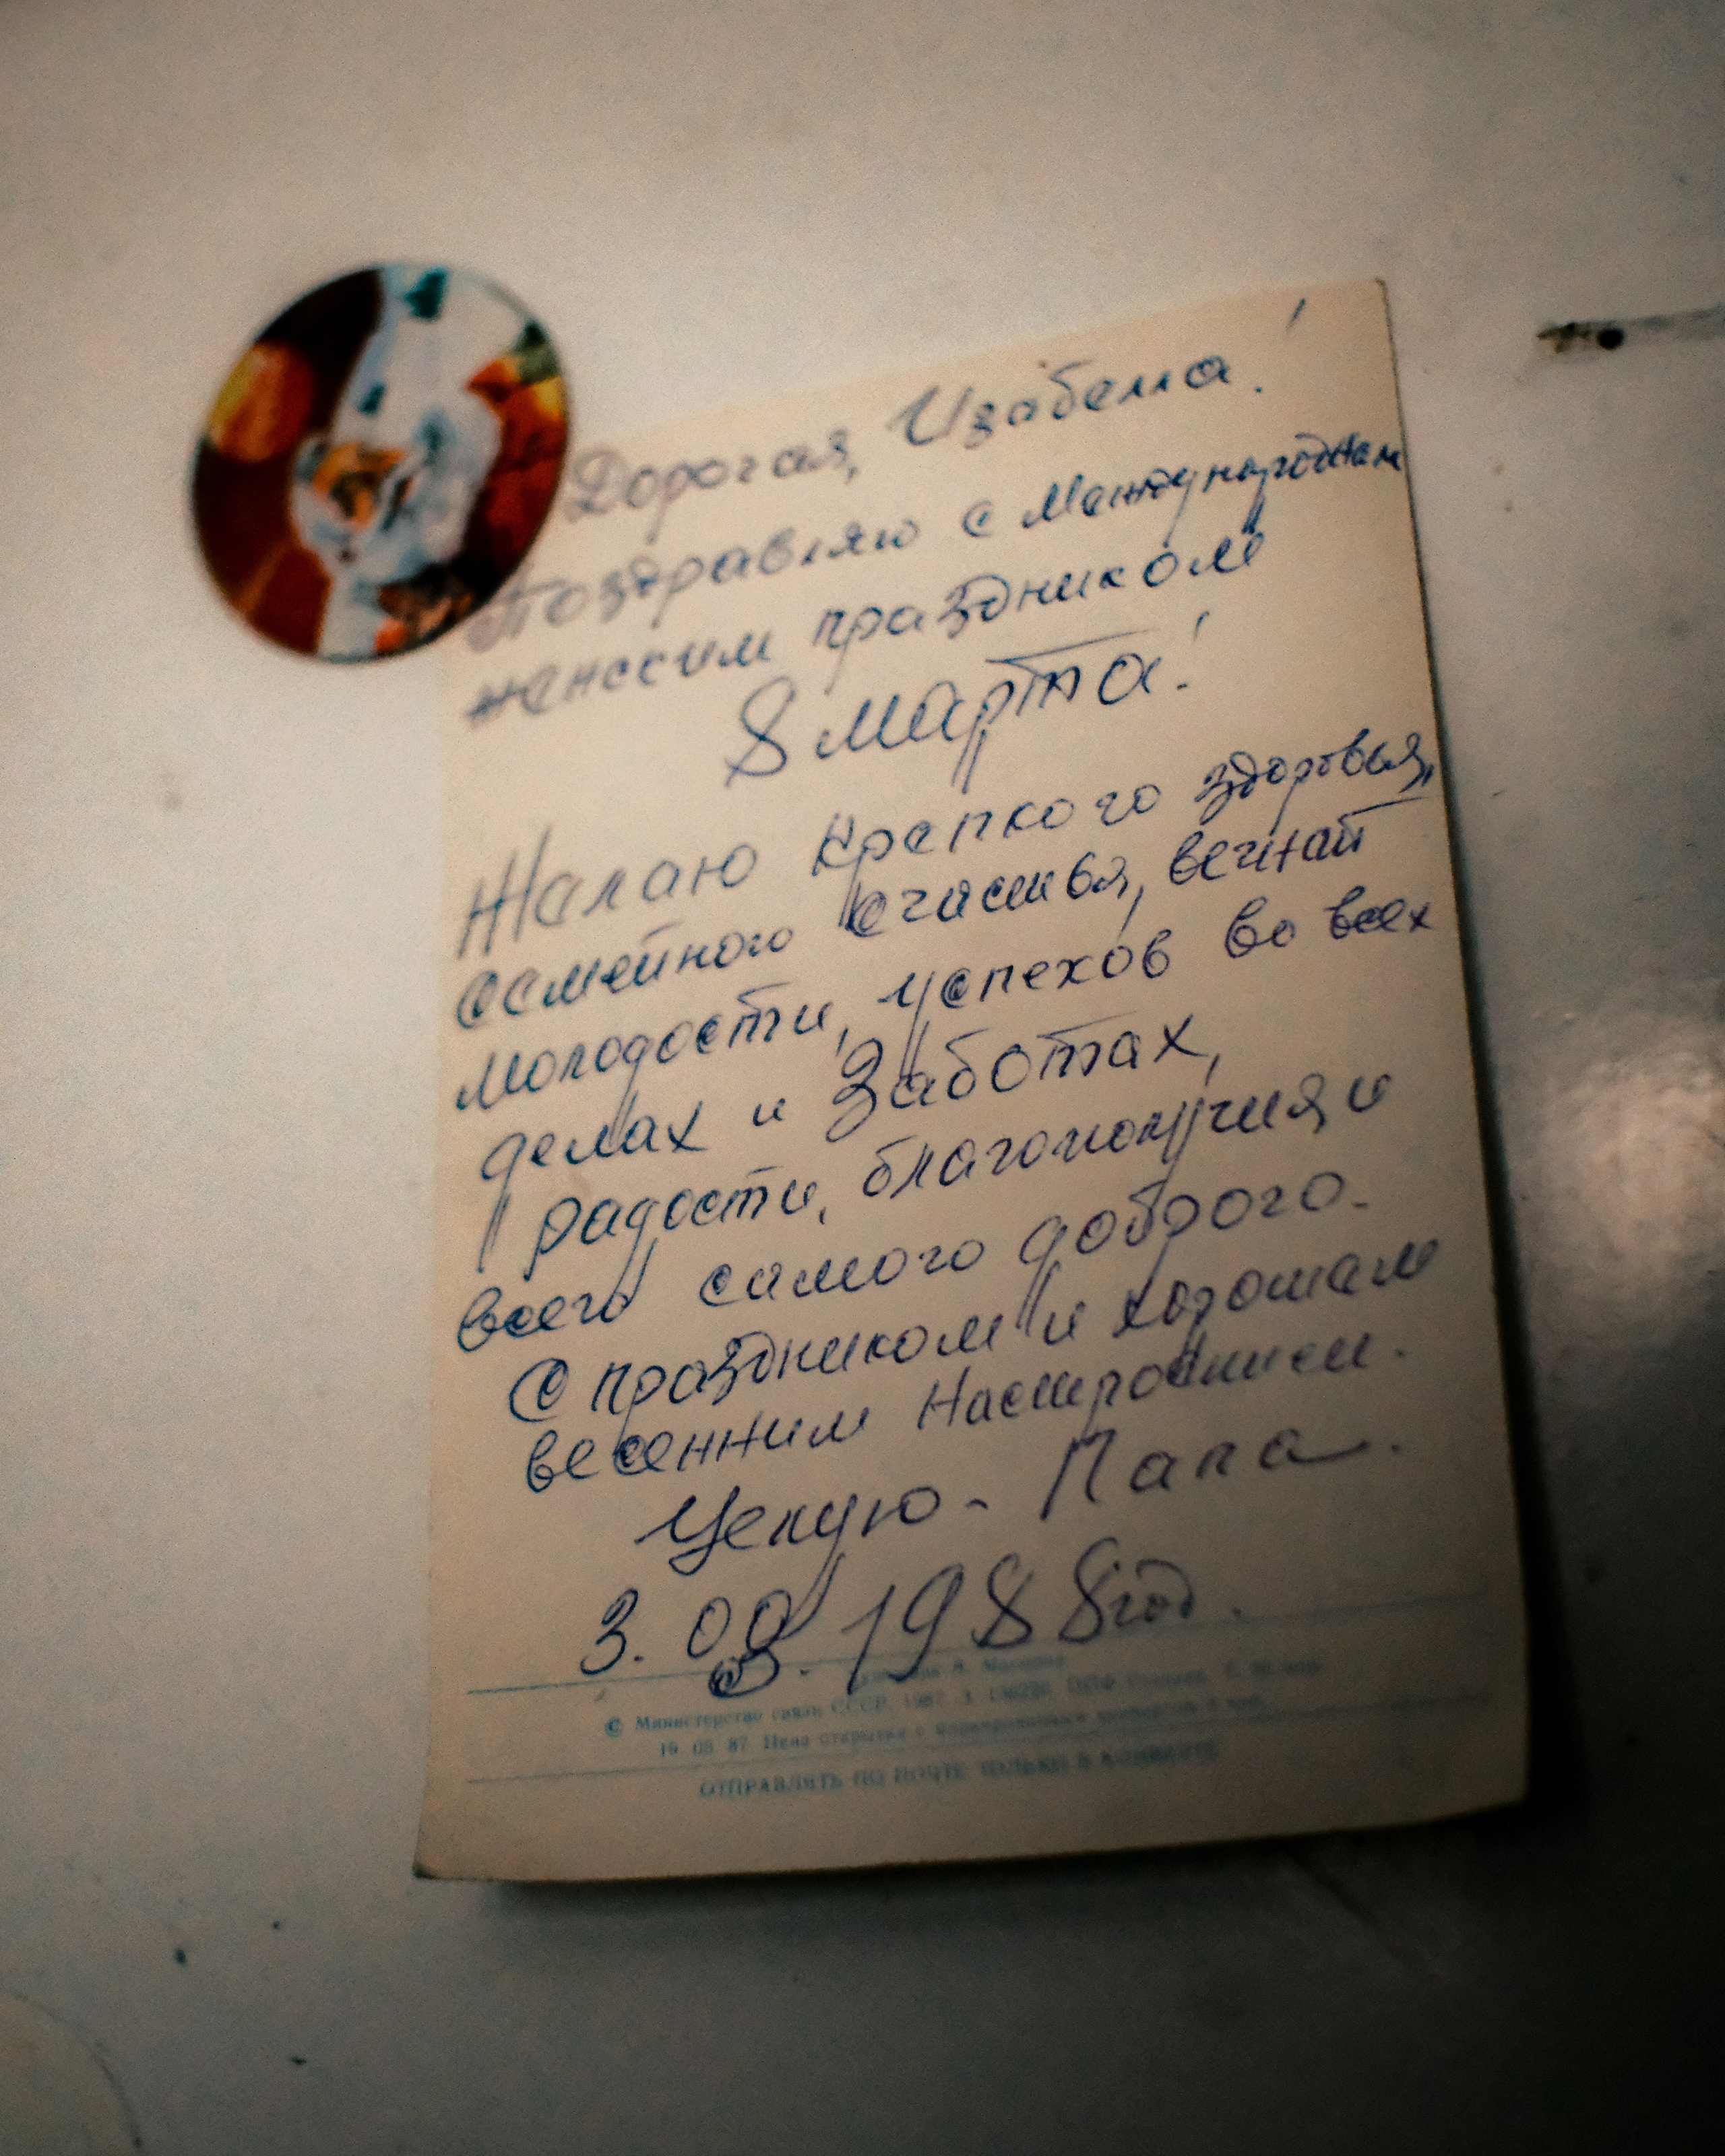 Дорогая, Изабелла!
Поздравляю с Международнам
женсским праздником
8 марта!
Желаю крепкого здоровья,
семейного счастья, вечнай
молодости, успехов во всех
делах и заботах,
радости, благополучия и
всего самого доброго.
С праздником и хорошам
весенним настроением.
Целую - Папа.
3. 03. 1988 год.
© Министерство связи СССР, 1987. З.
19. 03. 87. Цена открытки с маркированным конвертом
ОТПРАВЛЯТЬ ПО ПОЧТЕ ТОЛЬКО В КОНВЕРТЕ